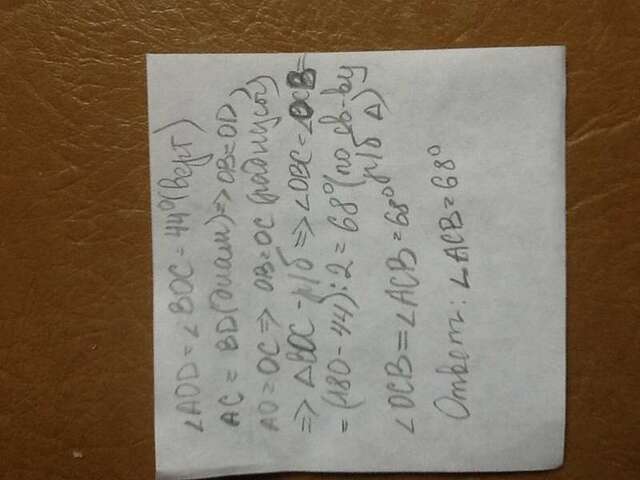 ∠AOD = ∠BOC = 44°(верт)
AC = BD(диам)=> OB=OD,
AO = OC => OB=OC (радиусы)
=> △BOC - р/б => ∠OBC = ∠OCB =
= (180 - 44) : 2 = 68° (по св-ву
р/б △)
∠OCB = ∠ACB = 68°
Ответ: ∠ACB = 68°